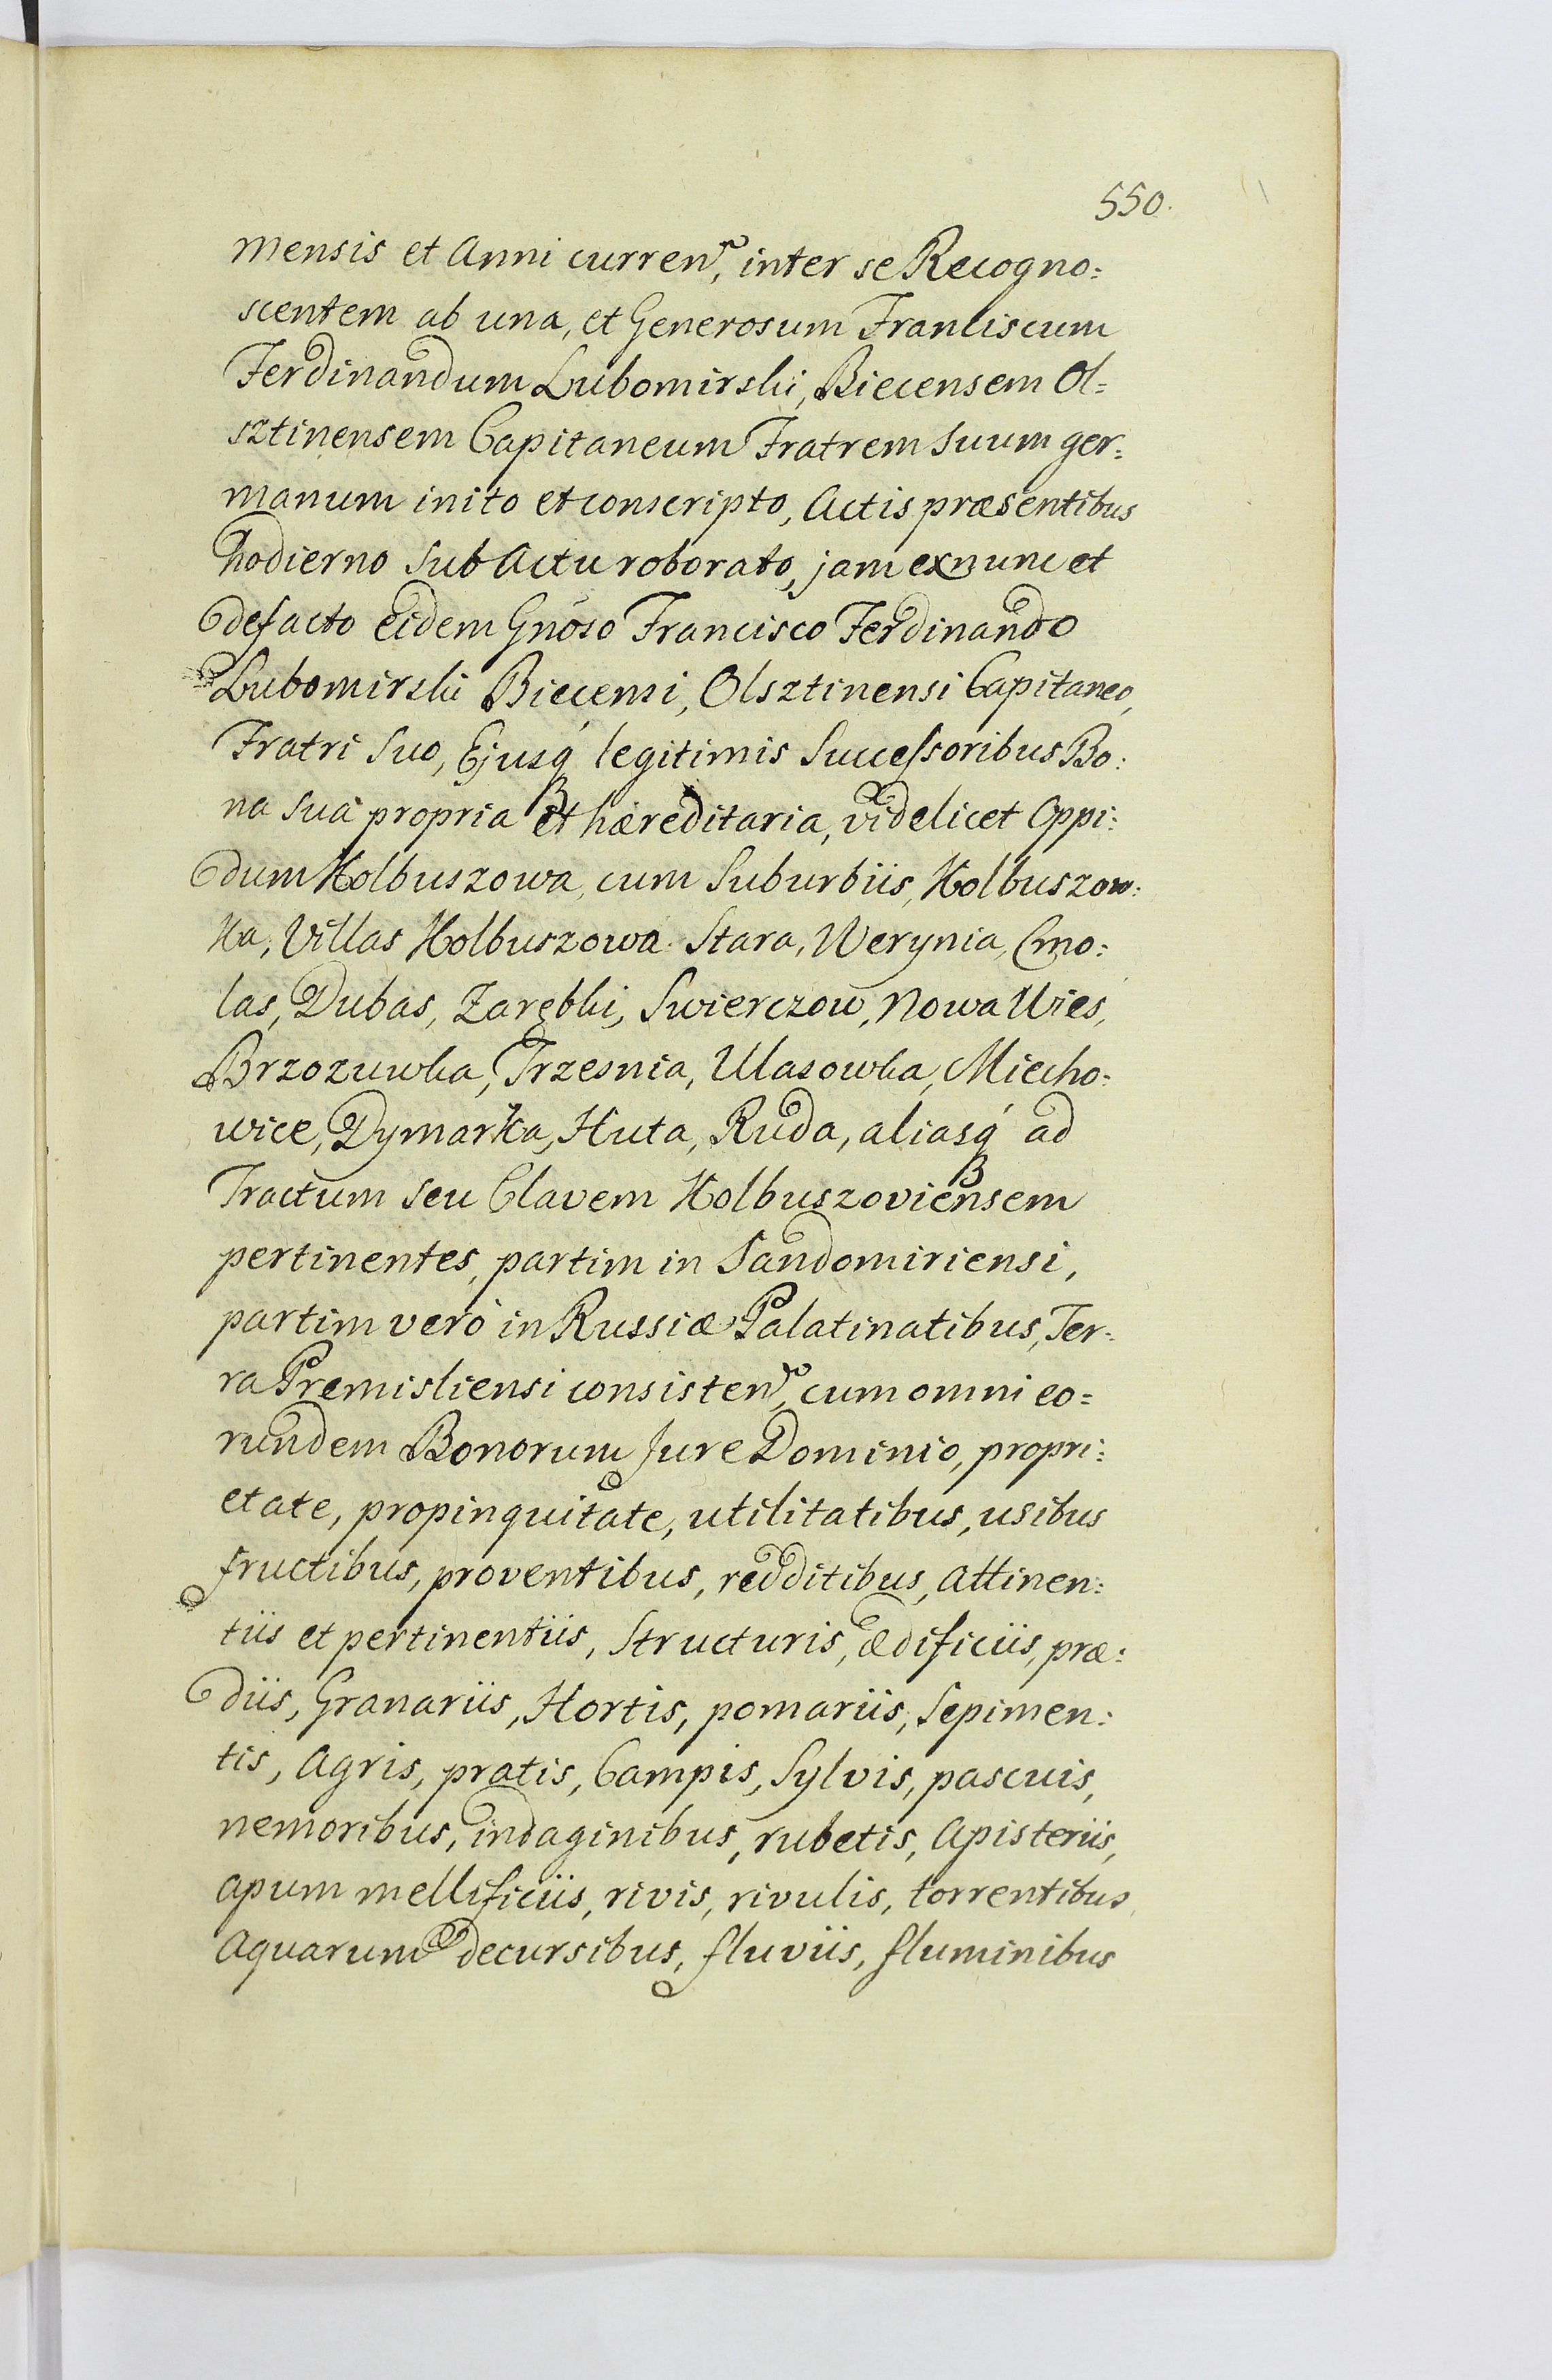 550.
mensis et Anni curren, inter se Recogno:
scentem ab una, et Generosum Franciscum
Ferdinandum Lubomirski, Biecensem Ol=
sztinensem Capitaneum Fratrem suum ger:
manum inito et conscripto, Actis præsentibus
hodierno sub Actu roborato, jam ex nunc et
de facto eidem Gnoso Francisco Ferdinando
Lubomirski Biecensi, Olsztinensi Capitaneo,
Fratri suo, Ejusq́ legitimis Successoribus Bo:
na sua propria et hæreditaria, videlicet Oppi:
dum Kolbuszowa, cum Suburbiis, Kolbuszow:
ka, Villas Kolbuszowa Stara, Werynia, Cmo:
las, Dubas, Zarębki, Swierczow, Nowa Wies,
Brzozuwka, Trzesnia, Ulasowka, Miecho:
wice, Dymarka, Huta, Ruda, aliasq́ ad
Tractum seu Clavem Kolbuszoviensem
pertinentes, partim in Sandomiriensi,
partim verò in Russiæ Palatinatibus, Ter:
ra Premisliensi consisten, cum omni eo=
rundem Bonorum Jure Dominio, propri:
etate, propinquitate, utilitatibus, usibus
fructibus, proventibus, redditibus, attinen:
tiis et pertinentiis, structuris, ædificiis, præ:
diis, Granariis, Hortis, pomariis, sepimen:
tis, Agris, pratis, Campis, Sylvis, pascuis,
nemoribus, indaginibus, rubetis, Apisteriis,
apum mellificiis, rivis, rivulis, torrentibus,
Aquarum decursibus, fluviis, fluminibus